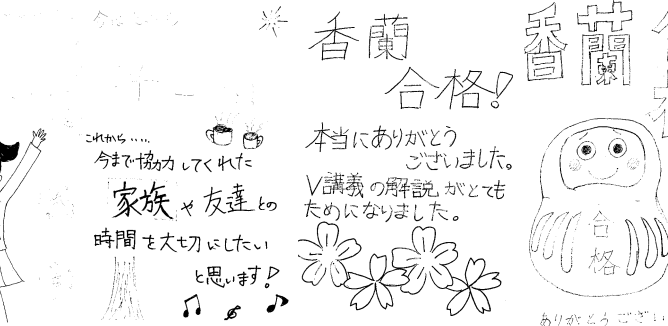 これから.....
今まで協力してくれた
家族や友達との
時間を大切にしたい
と思います!
香蘭
合格!
本当にありがとう
ございました。
V講義の解説がとても
ためになりました。
香蘭
合格
ありがとうござい